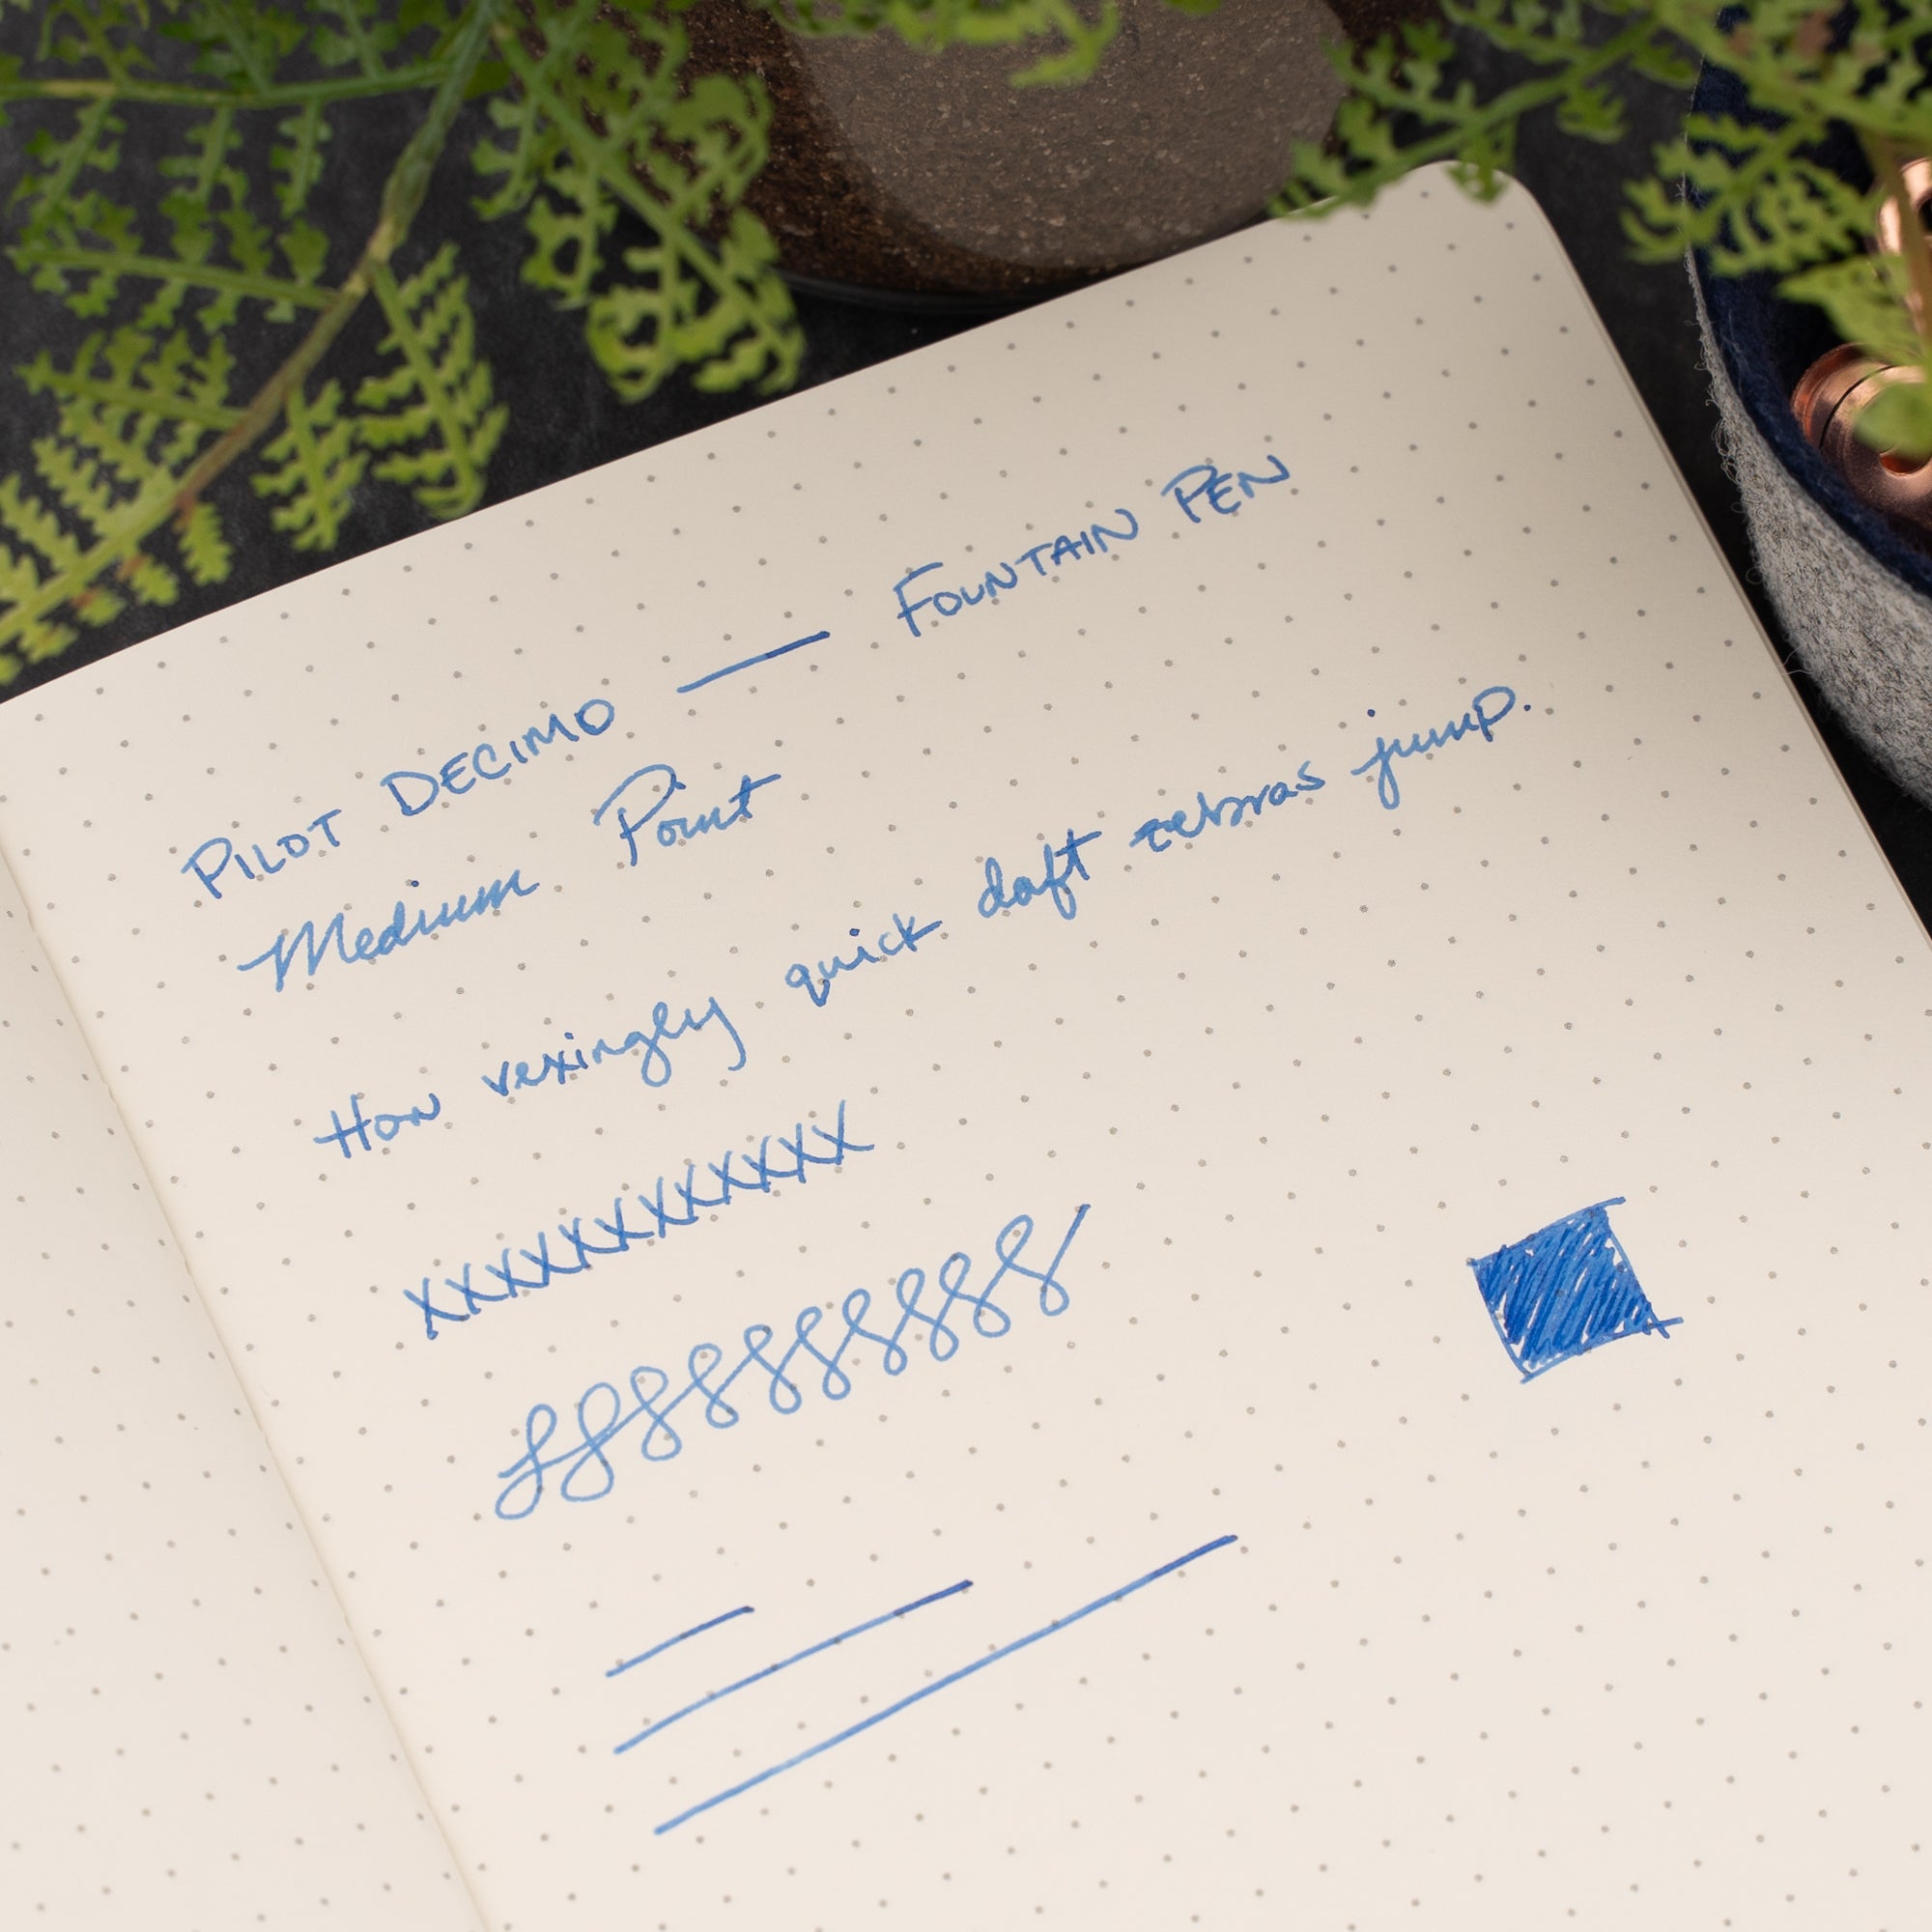 PILOT DECIMO — FOUNTAIN PEN
Medium Point
How vexingly quick daft zebras jump.
XXXXXXXXXXX